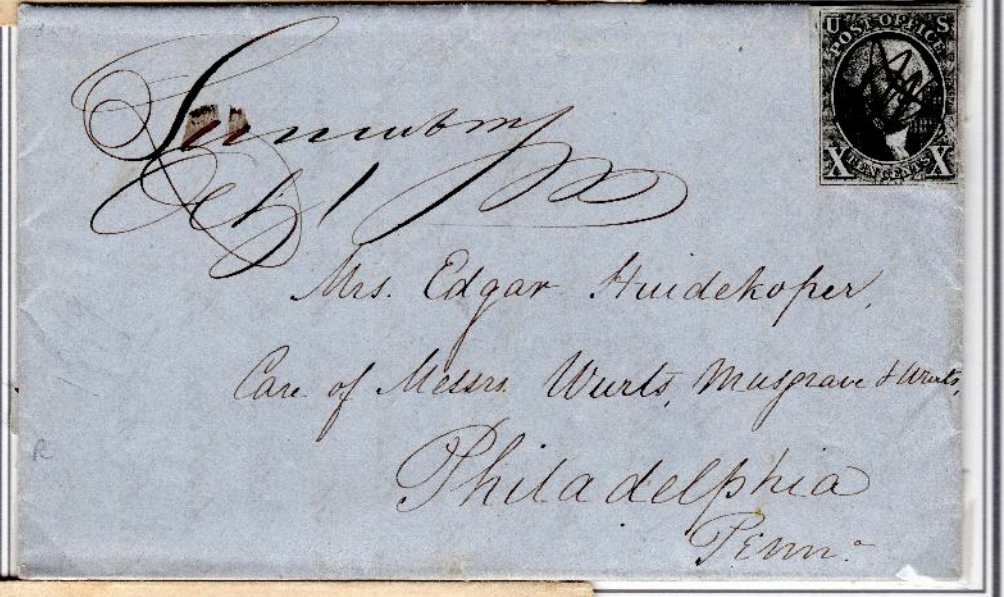 U S
POST OFFICE
X TEN CENTS X
Mrs. Edgar Huidekoper,
Care of Messrs. Wurts, Musgrave & Wurts,
Philadelphia
Penna
R